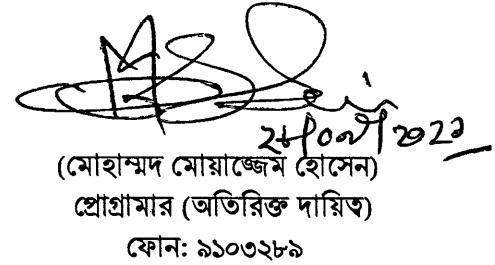 (মোহাম্মদ মোয়াজ্জেম হোসেন)
প্রোগ্রামার (অতিরিক্ত দায়িত্ব)
ফোন: ৯১০৩২৮৯